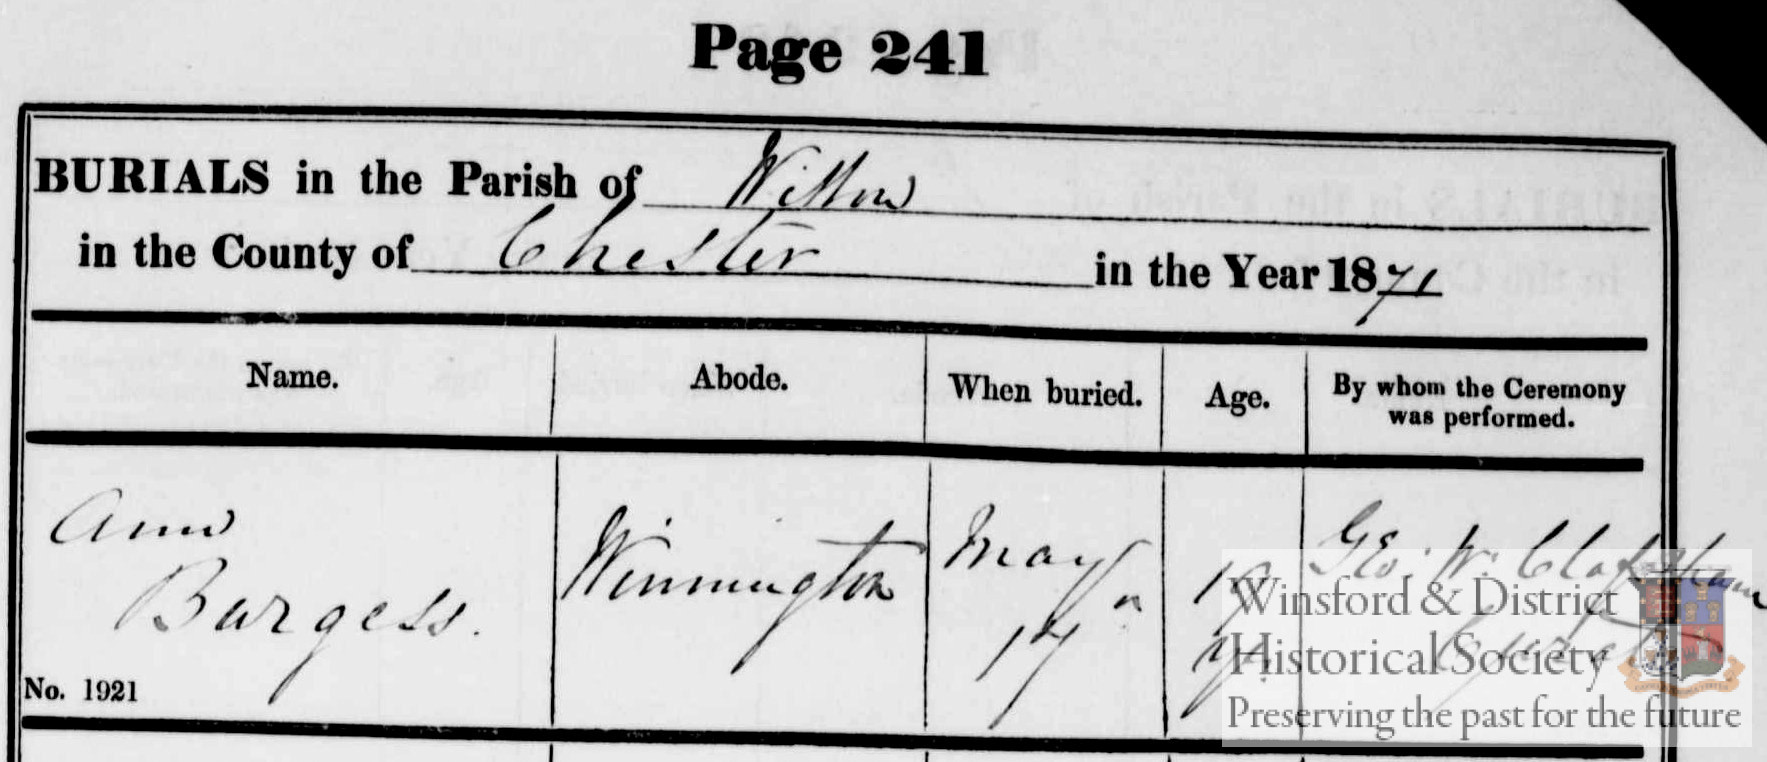 Page 241
BURIALS in the Parish of Witton
in the County of Chester in the Year 1871
Name. Abode. When buried. Age. By whom the Ceremony was performed.
Ann
Burgess.
Winnington
May
17
Geo: W:
No. 1921
Winsford & District
Historical Society
Preserving the past for the future